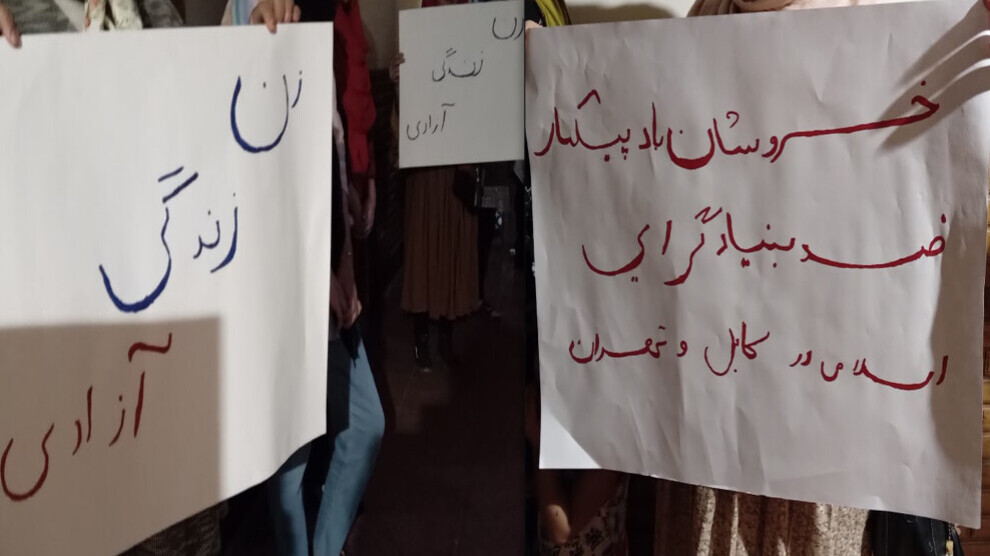 زن
زندگی
آزادی
زن
زندگی
آزادی
خروشان باد پیکار
ضد بنیادگرایی
اسلامی در کابل و تهران